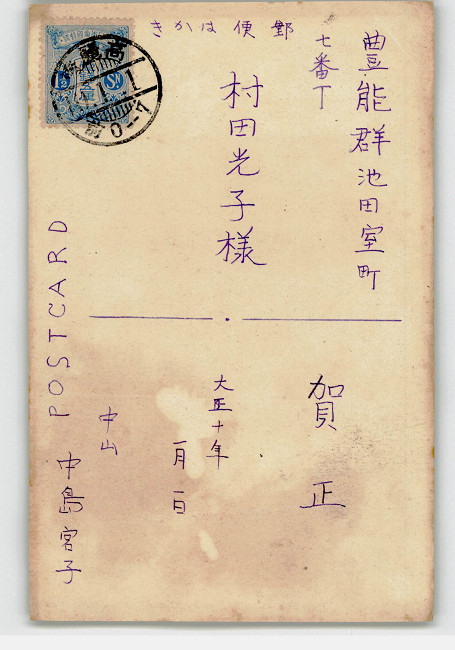 きかは便郵
豊能群池田室町
七番丁
村田光子様
賀正
大正十年
一月一日
中山
中島宮子
POSTCARD